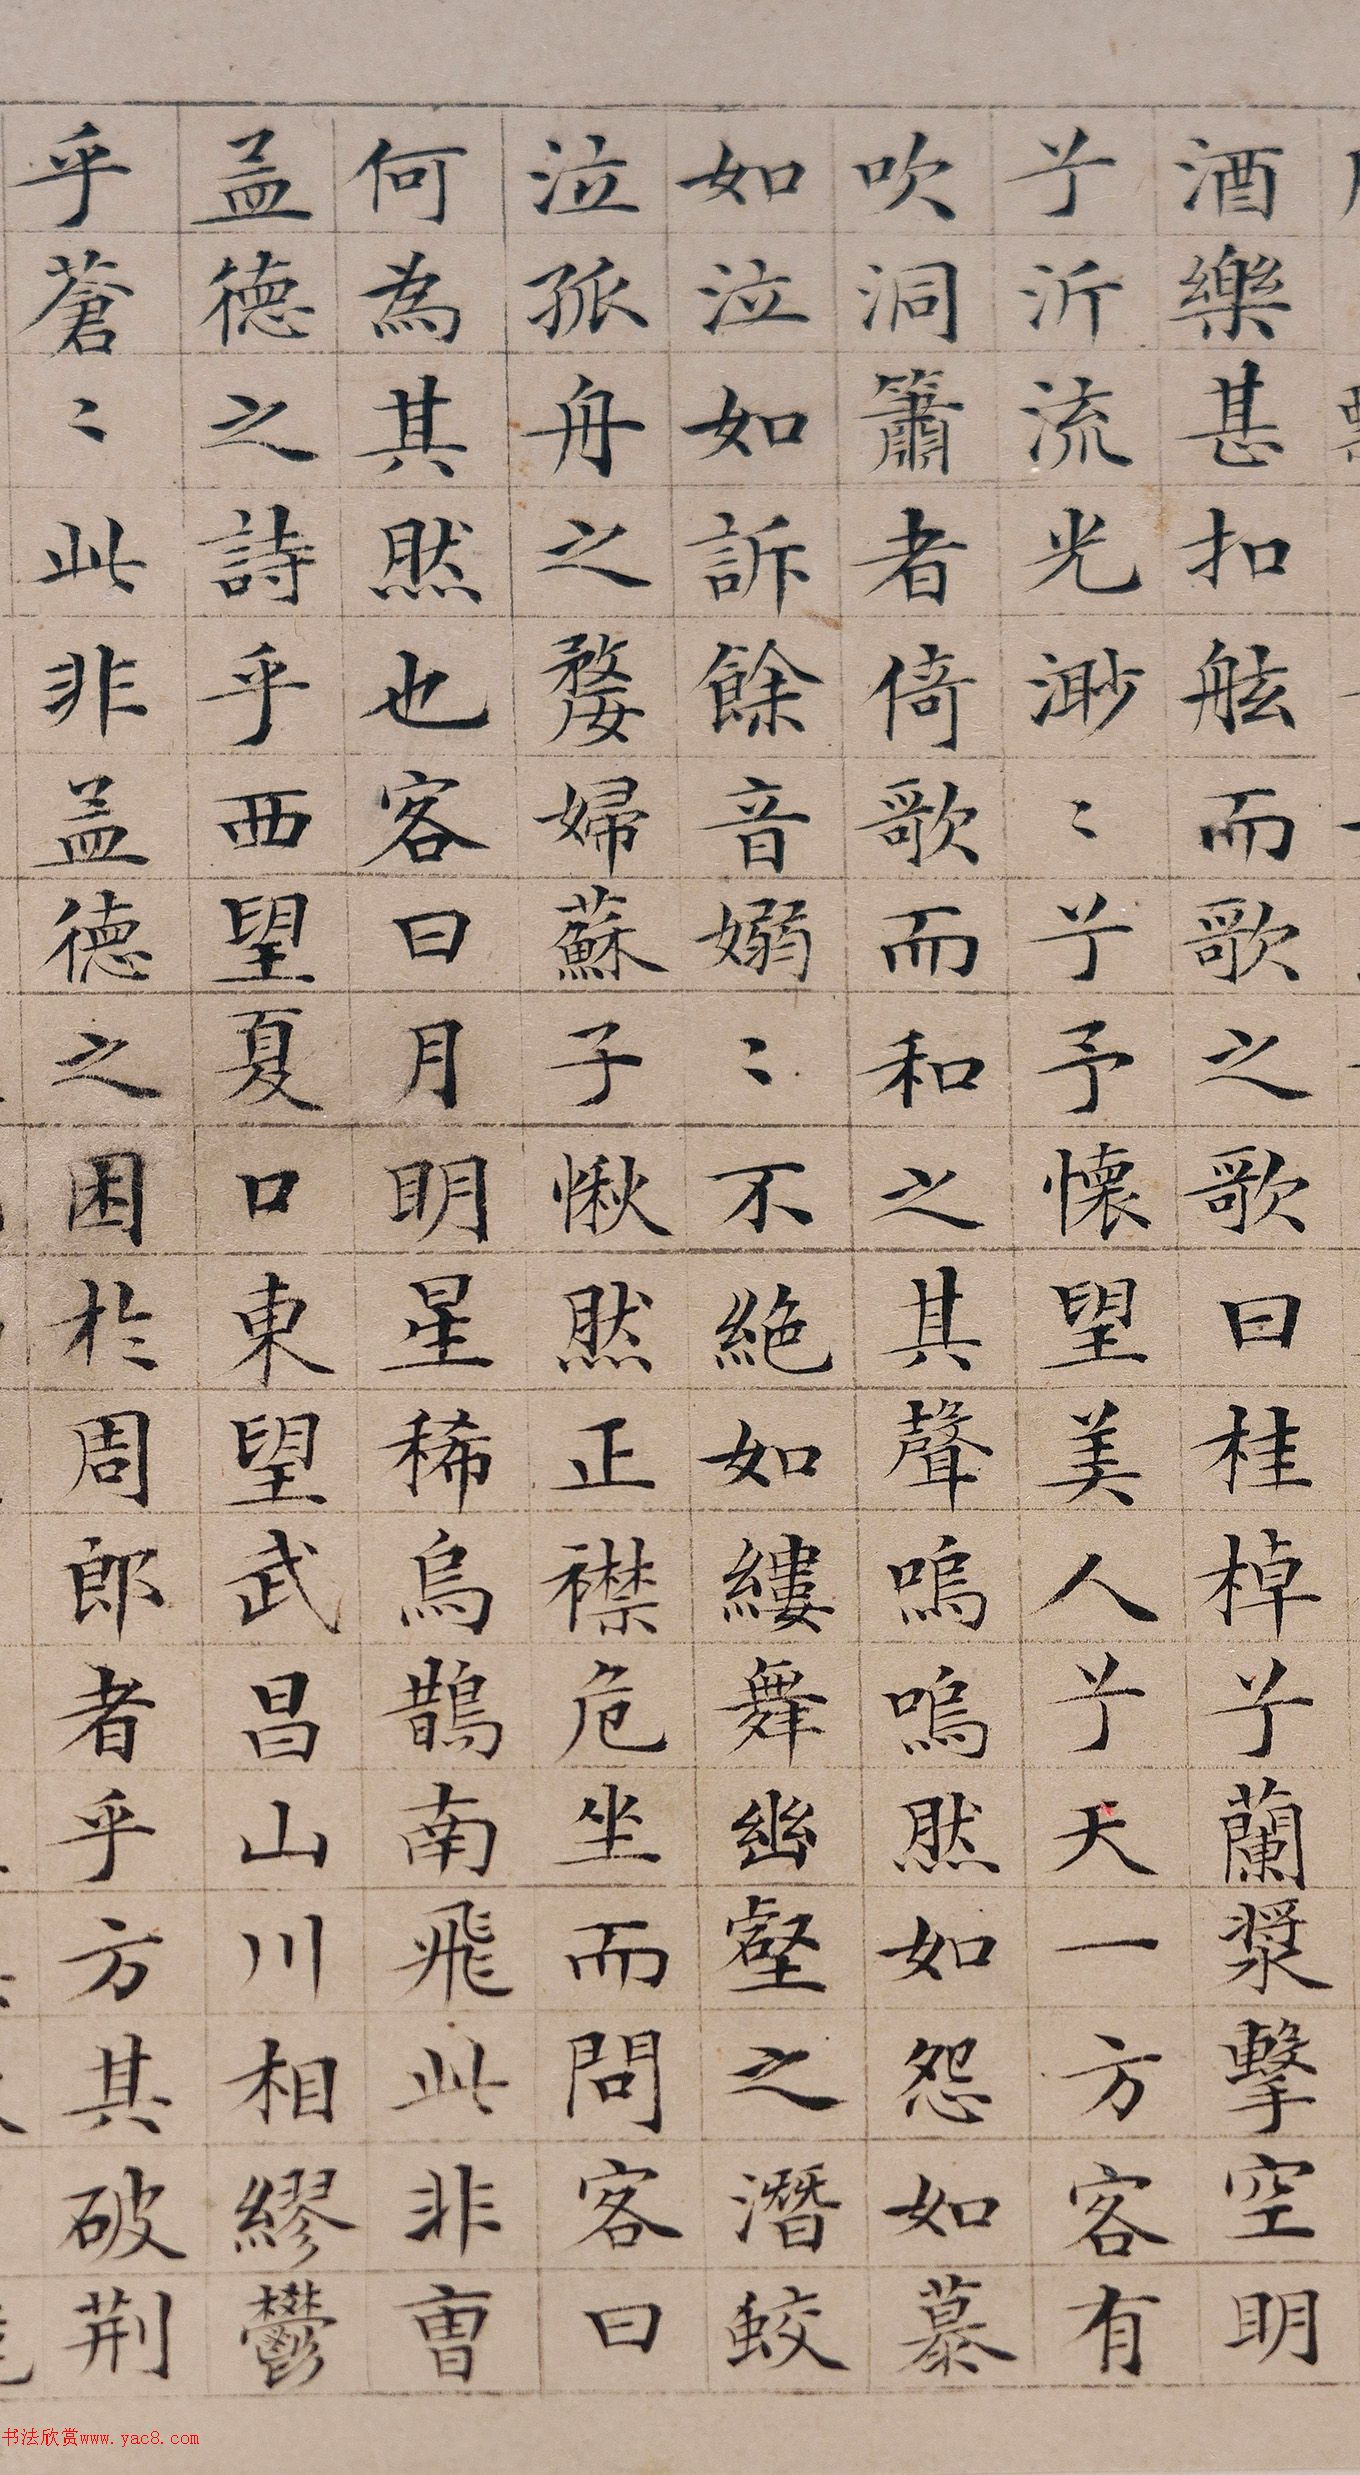 酒樂甚扣舷而歌之歌曰桂棹兮蘭槳擊空明
兮泝流光渺〻兮予懷望美人兮天一方客有
吹洞簫者倚歌而和之其聲嗚嗚然如怨如慕
如泣如訴餘音嫋〻不絕如縷舞幽壑之潛蛟
泣孤舟之嫠婦蘇子愀然正襟危坐而問客曰
何為其然也客曰月明星稀烏鵲南飛此非曹
孟德之詩乎西望夏口東望武昌山川相繆鬱
乎蒼〻此非孟德之困於周郎者乎方其破荆
书法欣赏www.yac8.com